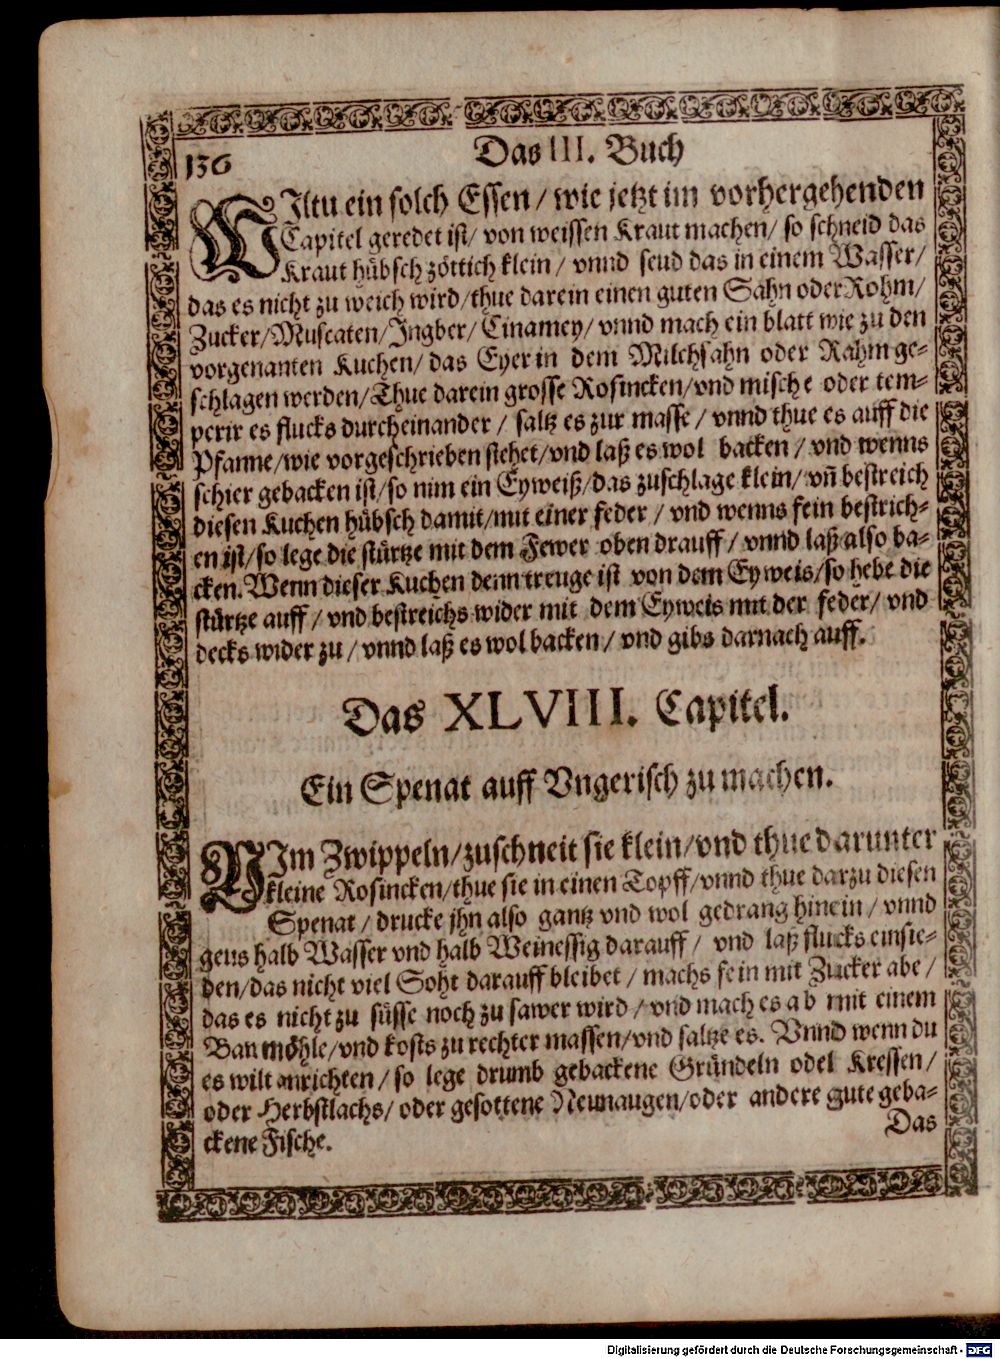 136
Das III. Buch
WIltu ein solch Essen / wie jetzt im vorhergehenden
Capitel geredet ist/ von weissen Kraut machen/ so schneid das
Kraut hübsch zöttich klein / vnnd seud das in einem Wasser/
das es nicht zu weich wird/thue darein einen guten Sahn oder Rohm/
Zucker/Muscaten/Ingber/Cinamey/ vnnd mach ein blatt wie zu den
vorgenanten Kuchen/ das Eyer in dem Milchsahn oder Rahm ge-
schlagen werden/Thue darein grosse Rosincken/vnd mische oder tem-
perir es flucks durcheinander / saltz es zur masse / vnnd thue es auff die
Pfanne/wie vorgeschrieben stehet/vnd laß es wol backen / vnd wenns
schier gebacken ist/so nim ein Eyweiß/das zuschlage klein/ vñ bestreich
diesen Kuchen hübsch damit/mit einer feder / vnd wenns fein bestrich-
en ist/so lege die stürtze mit dem Fewer oben drauff / vnnd laß also ba-
cken. Wenn dieser Kuchen denn treuge ist von dem Eyweis/so hebe die
stürtze auff / vnd bestreichs wider mit dem Eyweis mit der feder/ vnd
decks wider zu / vnnd laß es wol backen / vnd gibs darnach auff.
Das XLVIII. Capitel.
Ein Spenat auff Vngerisch zu machen.
NIm Zwippeln/zuschneit sie klein/vnd thue darunter
kleine Rosincken/thue sie in einen Topff/vnnd thue darzu diesen
Spenat / drucke jhn also gantz vnd wol gedrang hinein / vnnd
geus halb Wasser vnd halb Weinessig darauff / vnd laß flucks einsie-
den/das nicht viel Soht darauff bleibet / machs fein mit Zucker abe /
das es nicht zu süsse noch zu sawer wird / vnd mach es ab mit einem
Ban möhle/vnd kosts zu rechter massen/vnd saltze es. Vnnd wenn du
es wilt anrichten / so lege drumb gebackene Gründeln odel Kressen/
oder Herbstlachs/ oder gesottene Neunaugen/oder andere gute geba-
ckene Fische.
Das
Digitalisierung gefördert durch die Deutsche Forschungsgemeinschaft - DFG